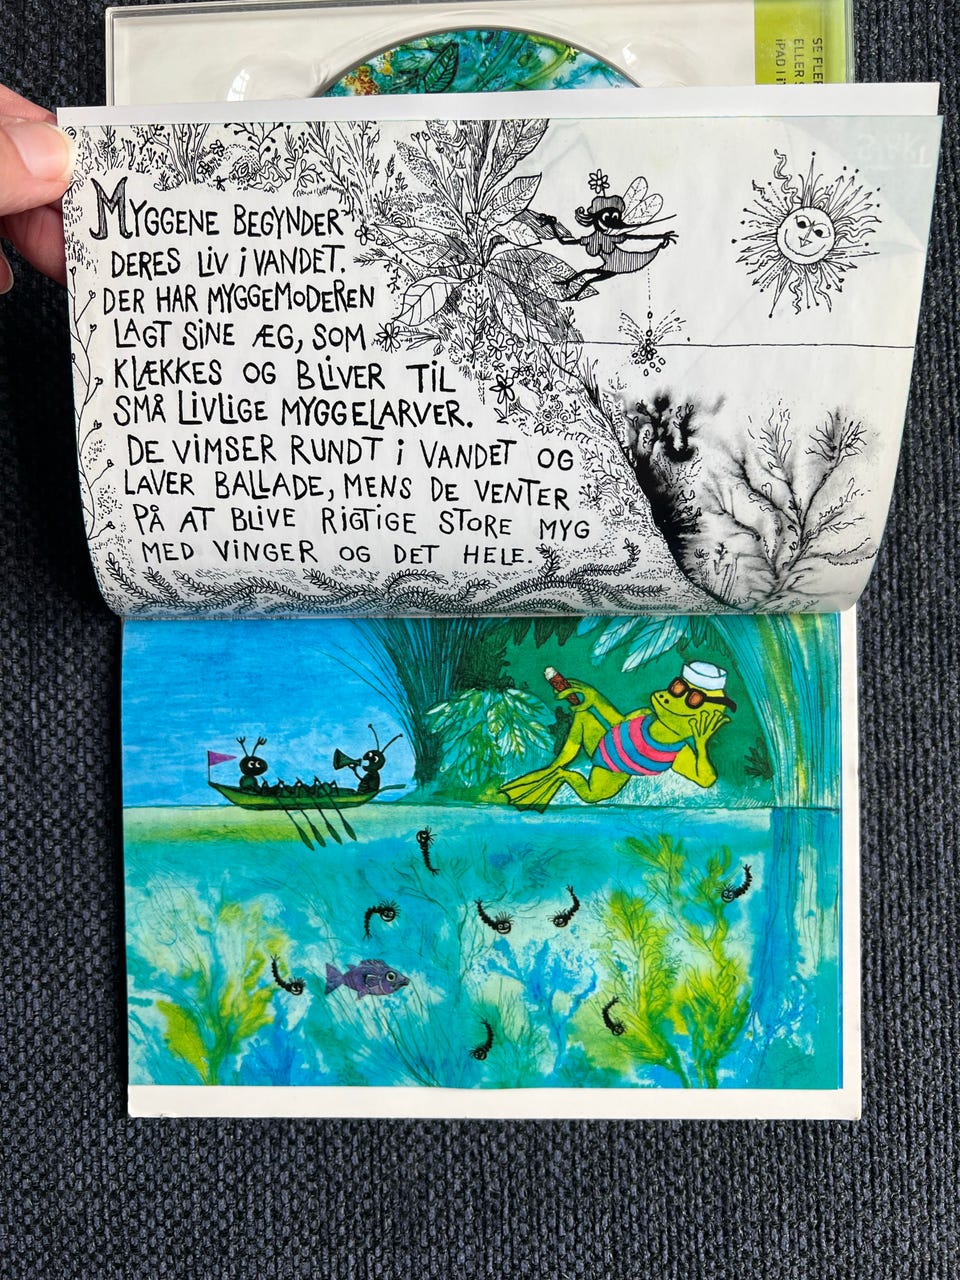 SE FLER
ELLER S
iPAD I i
MYGGENE BEGYNDER
DERES LIV i VANDET.
DER HAR MYGGEMODEREN
LAGT SINE ÆG, SOM
KLÆKKES OG BLIVER TIL
SMÅ LIVLIGE MYGGELARVER.
DE VIMSER RUNDT i VANDET OG
LAVER BALLADE, MENS DE VENTER
PÅ AT BLIVE RIGTIGE STORE MYG
MED VINGER OG DET HELE.